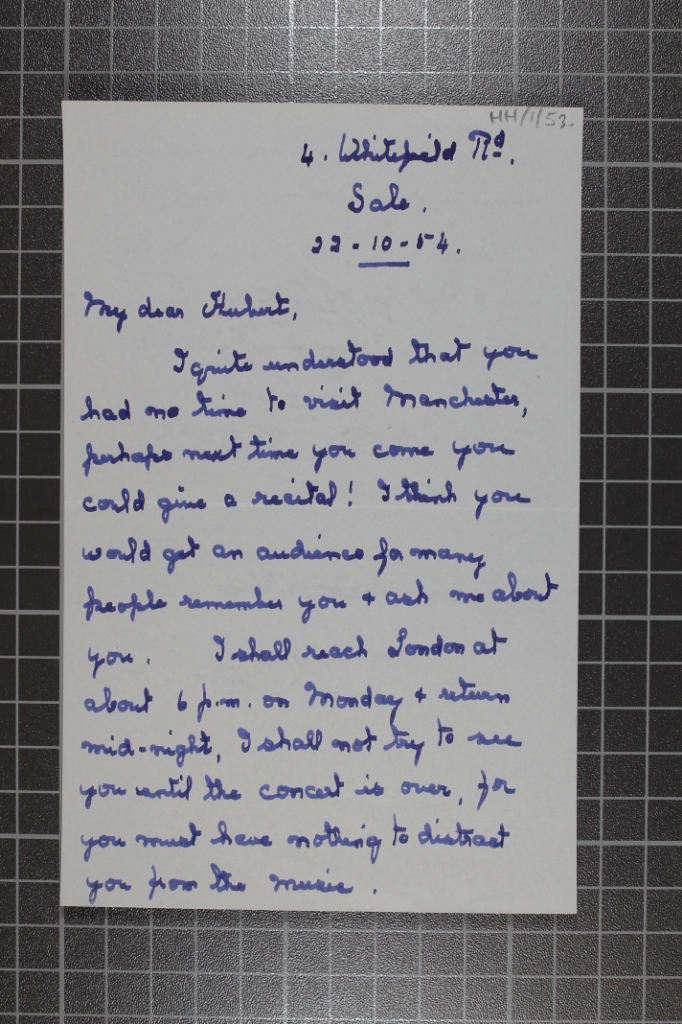 HH/1/53.
4. Whitefield Rd.
Sale.
22-10-54.
My dear Hubert,
I quite understood that you
had no time to visit Manchester,
perhaps next time you come you
could give a recital! I think you
would get an audience for many
people remember you + ask me about
you. I shall reach London at
about 6 p.m. on Monday + return
mid-night, I shall not try to see
you until the concert is over, for
you must have nothing to distract
you from the music.